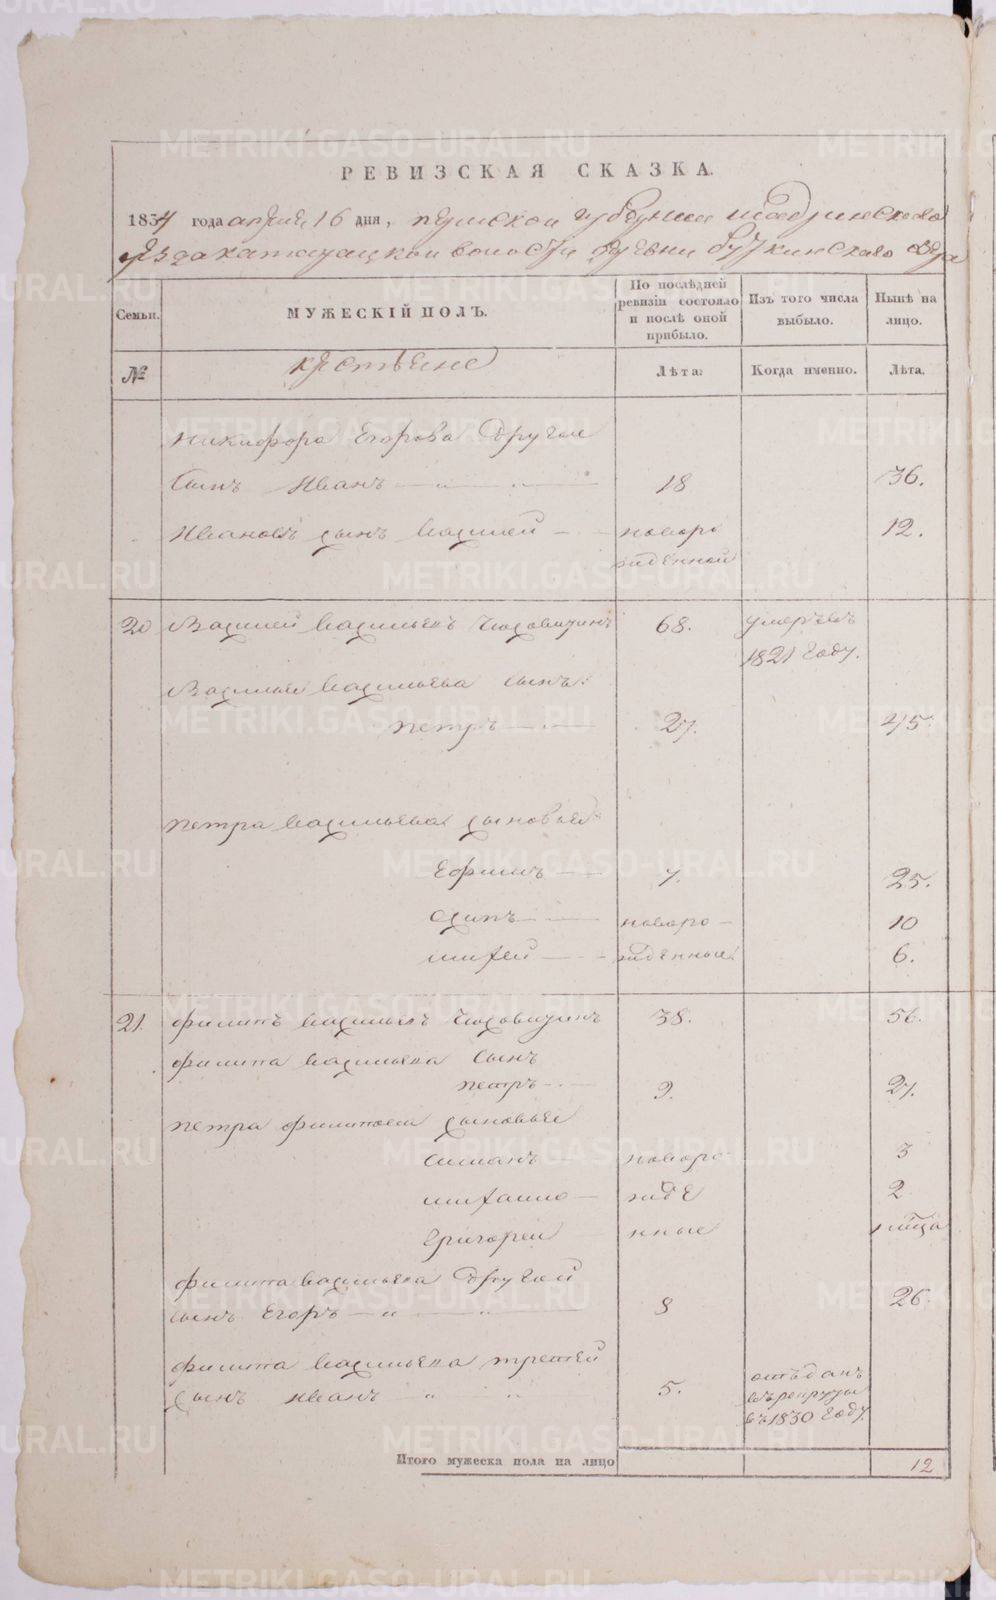 РЕВИЗСКАЯ СКАЗКА.
1834 года апреля 16 дня, пермской губернии шадринскаго
уезда катайцкой волости деревни буткинскаго озера
Семьи.
МУЖЕСКІЙ ПОЛЪ.
По послѣдней ревизіи состояло и послѣ оной прибыло.
Изъ того числа выбыло.
Нынѣ на лицо.
№
крестьяне
Лѣта:
Когда именно.
Лѣта.
Никифора Егорова другой
сынъ Иванъ 18 36.
Ивановъ сынъ Василей новоро 12.
жденной
20 Василей Васильевъ 68. умеръ въ
1821 году.
Василья Васильева сынъ
петръ 27. 45.
петра Васильева сыновья
Ефимъ 7. 25.
Осипъ новоро 10
михей жденные 6.
21. филипъ Васильевъ 38. 56.
филипа Васильева сынъ
петръ 9. 27.
петра филипова сыновья
Симанъ новоро 3
михайло жде 2
Григорей нные
филипа Васильева другой
сынъ Егоръ 8 26.
филипа Васильева третей
сынъ Иванъ 5. отъданъ
въ рекруты
въ 1830 году.
Итого мужеска пола на лицо 12
METRIKI.GASO-URAL.RU